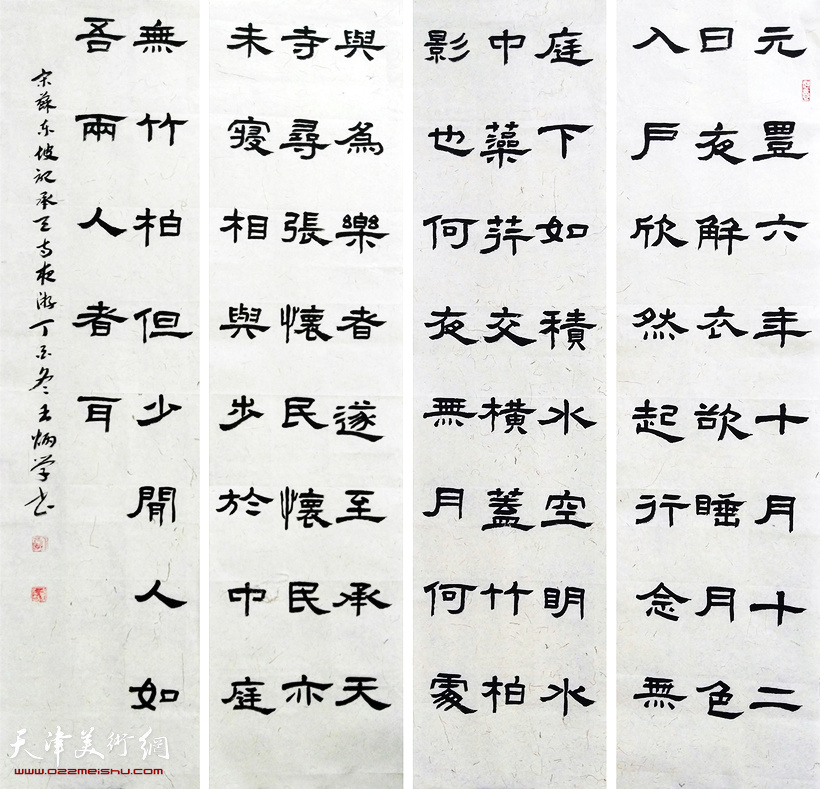 元豐六年十月十二
日夜解衣欲睡月色
入戶欣然起行念無
庭下如積水空明水
中藻荇交橫蓋竹柏
影也何夜無月何處
與為樂者遂至承天
寺尋張懷民懷民亦
未寢相與步於中庭
無竹柏但少閒人如
吾兩人者耳
宋蘇东坡記承天寺夜游丁酉冬王炳学书
天津美術網
www.022meishu.com